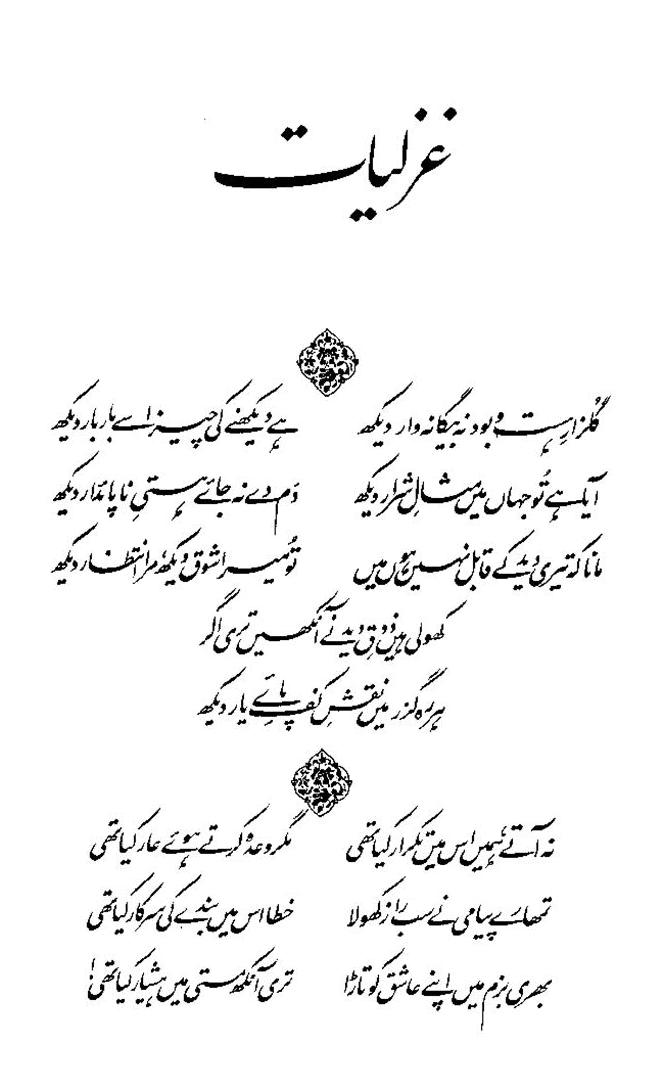 غزلیات
گلزارِ ہست و بود نہ بیگانہ وار دیکھ ہے دیکھنے کی چیز اسے بار بار دیکھ
آیا ہے تُو جہاں میں مثالِ شرار دیکھ دَم دے نہ جائے ہستیِ ناپائدار دیکھ
مانا کہ تیری دید کے قابل نہیں ہوں میں تُو میرا شوق دیکھ، مرا انتظار دیکھ
کھولی ہیں ذوقِ دید نے آنکھیں تری اگر
ہر رہ گزر میں نقشِ کفِ پائے یار دیکھ
نہ آتے ہمیں اس میں تکرار کیا تھی مگر وعدہ کرتے ہوئے عار کیا تھی
تمھارے پیامی نے سب راز کھولا خطا اس میں بندے کی سرکار کیا تھی
بھری بزم میں اپنے عاشق کو تاڑا تری آنکھ مستی میں ہشیار کیا تھی!